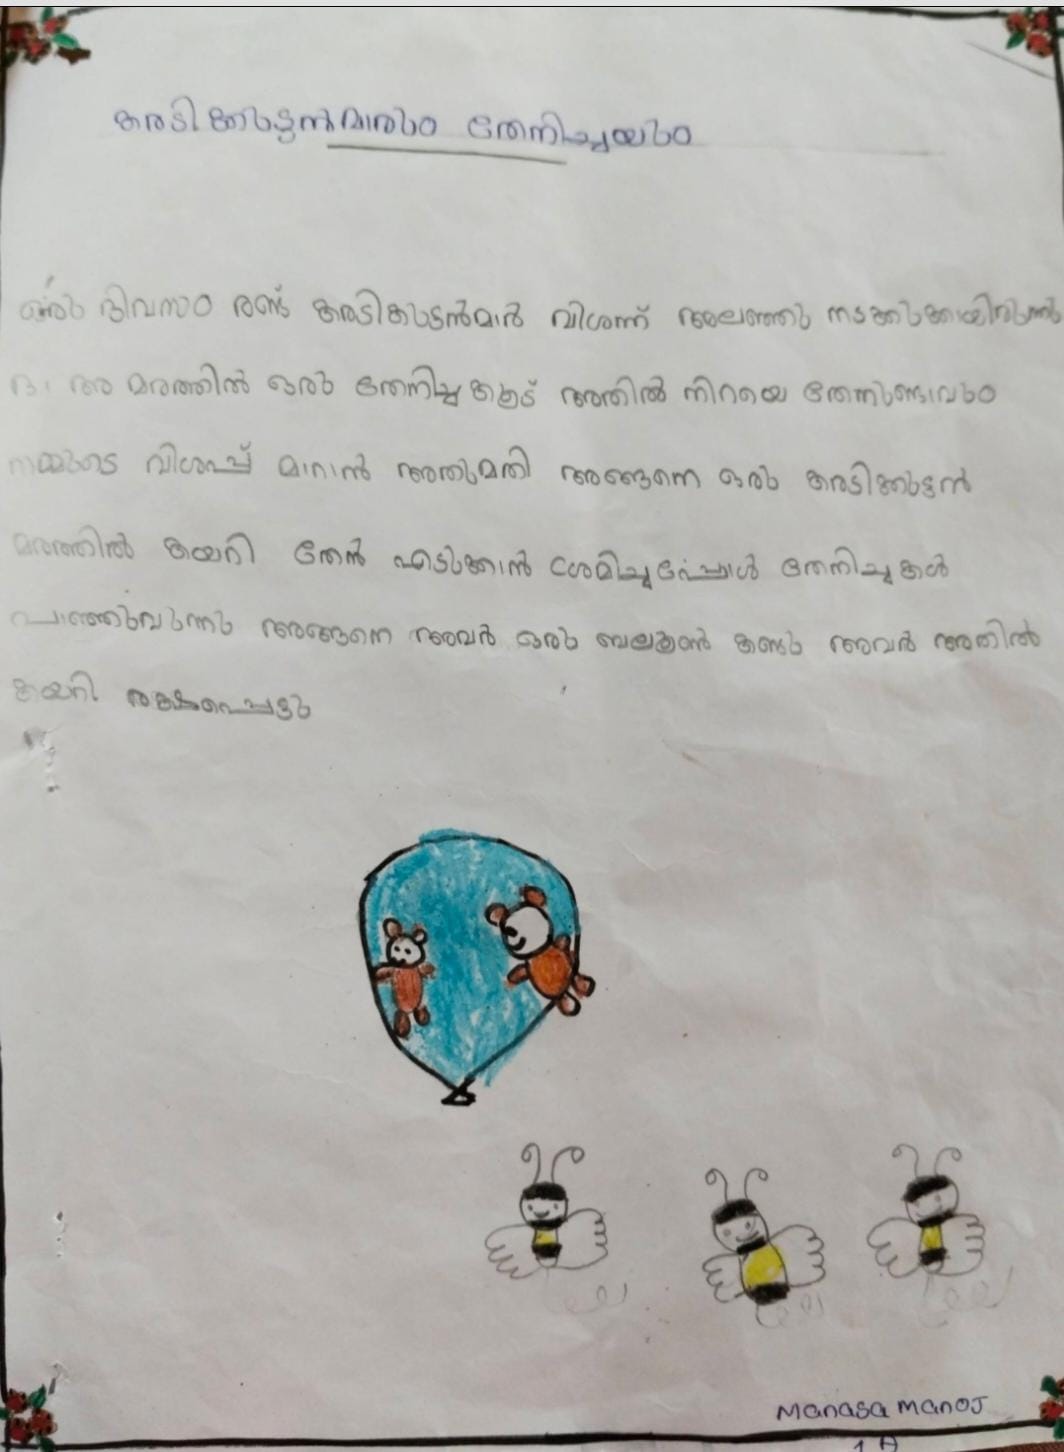 കരടിക്കുട്ടൻമാരും തേനിച്ചയും
ഒരു ദിവസം രണ്ട് കരടികുട്ടൻമാർ വിശന്ന് അലഞ്ഞു നടക്കുകയായിരുന്നു
ദാ ആ മരത്തിൽ ഒരു തേനിച്ചകൂട് അതിൽ നിറയെ തേനുണ്ടാവും
നമ്മുടെ വിശപ്പ് മാറാൻ അതുമതി അങ്ങനെ ഒരു കരടിക്കുട്ടൻ
മരത്തിൽ കയറി തേൻ എടുക്കാൻ ശ്രമിച്ചപ്പോൾ തേനിച്ചകൾ
പാഞ്ഞുവന്നു അങ്ങനെ അവർ ഒരു ബലൂൺ കണ്ടു അവർ അതിൽ
കയറി രക്ഷപ്പെട്ടു
Manasa manoj
1 A